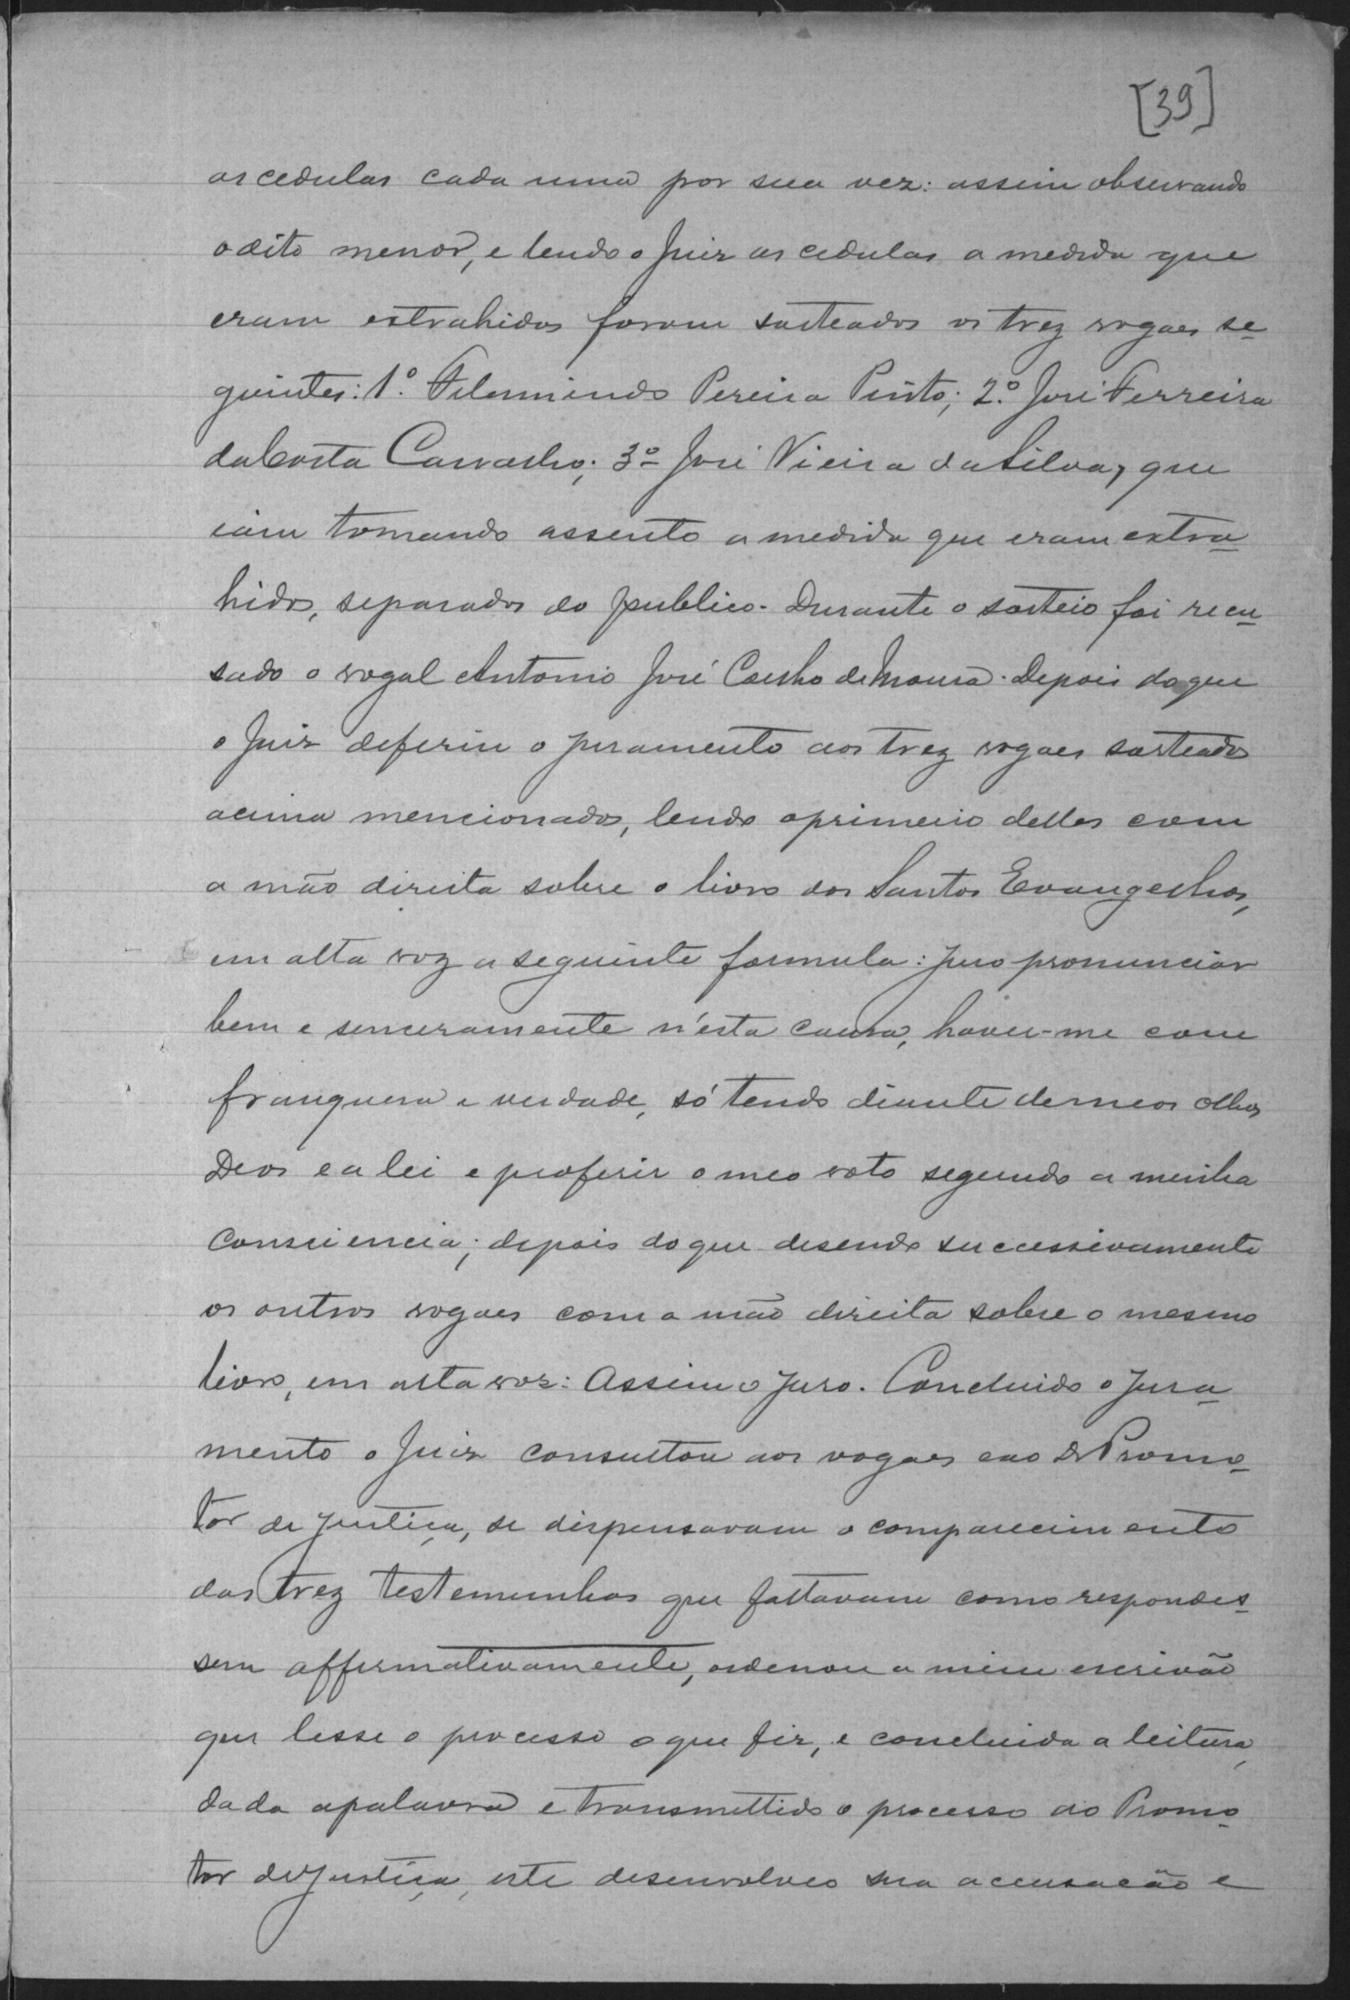 [39]
as cedulas cada uma por sua vez: assim observando
o dito menor, e lendo o Juiz as cedulas a medida que
eram extrahidas foram sorteados os trez vogaes se-
guintes: 1º. Filomindo Pereira Pinto; 2.º José Ferreira
da Costa Carvalho; 3º José Vieira da Silva, que
iam tomando assento a medida que eram extra-
hidos, separados do publico. Durante o sorteio foi recu-
sado o vogal Antonio José Coelho de Moura. Depois do que
o Juiz deferiu o juramento aos trez vogaes sorteados
acima mencionados, lendo o primeiro delles com
a mão direita sobre o livro dos Santos Evangelhos,
em alta voz a seguinte formula: juro pronunciar
bem e sinceramente n'esta causa, haver-me com
franqueza e verdade, só tendo diante de meos olhos
Deos e a lei e proferir o meo voto segundo a minha
consciencia; depois do que disendo successivamente
os outros vogaes com a mão direita sobre o mesmo
livro, em alta voz: Assim o juro. Concluido o jura-
mento o Juiz consultou aos vogaes e ao Dr Promo-
tor de justiça, se dispensavam o comparecimento
das trez testemunhas que faltavam como respondes-
sem affirmativamente, ordenou a mim escrivão
que lesse o processo o que fiz, e concluida a leitura,
dada a palavra e transmettido o processo ao Promo-
tor de Justiça, este desenvolveo sua accusação e